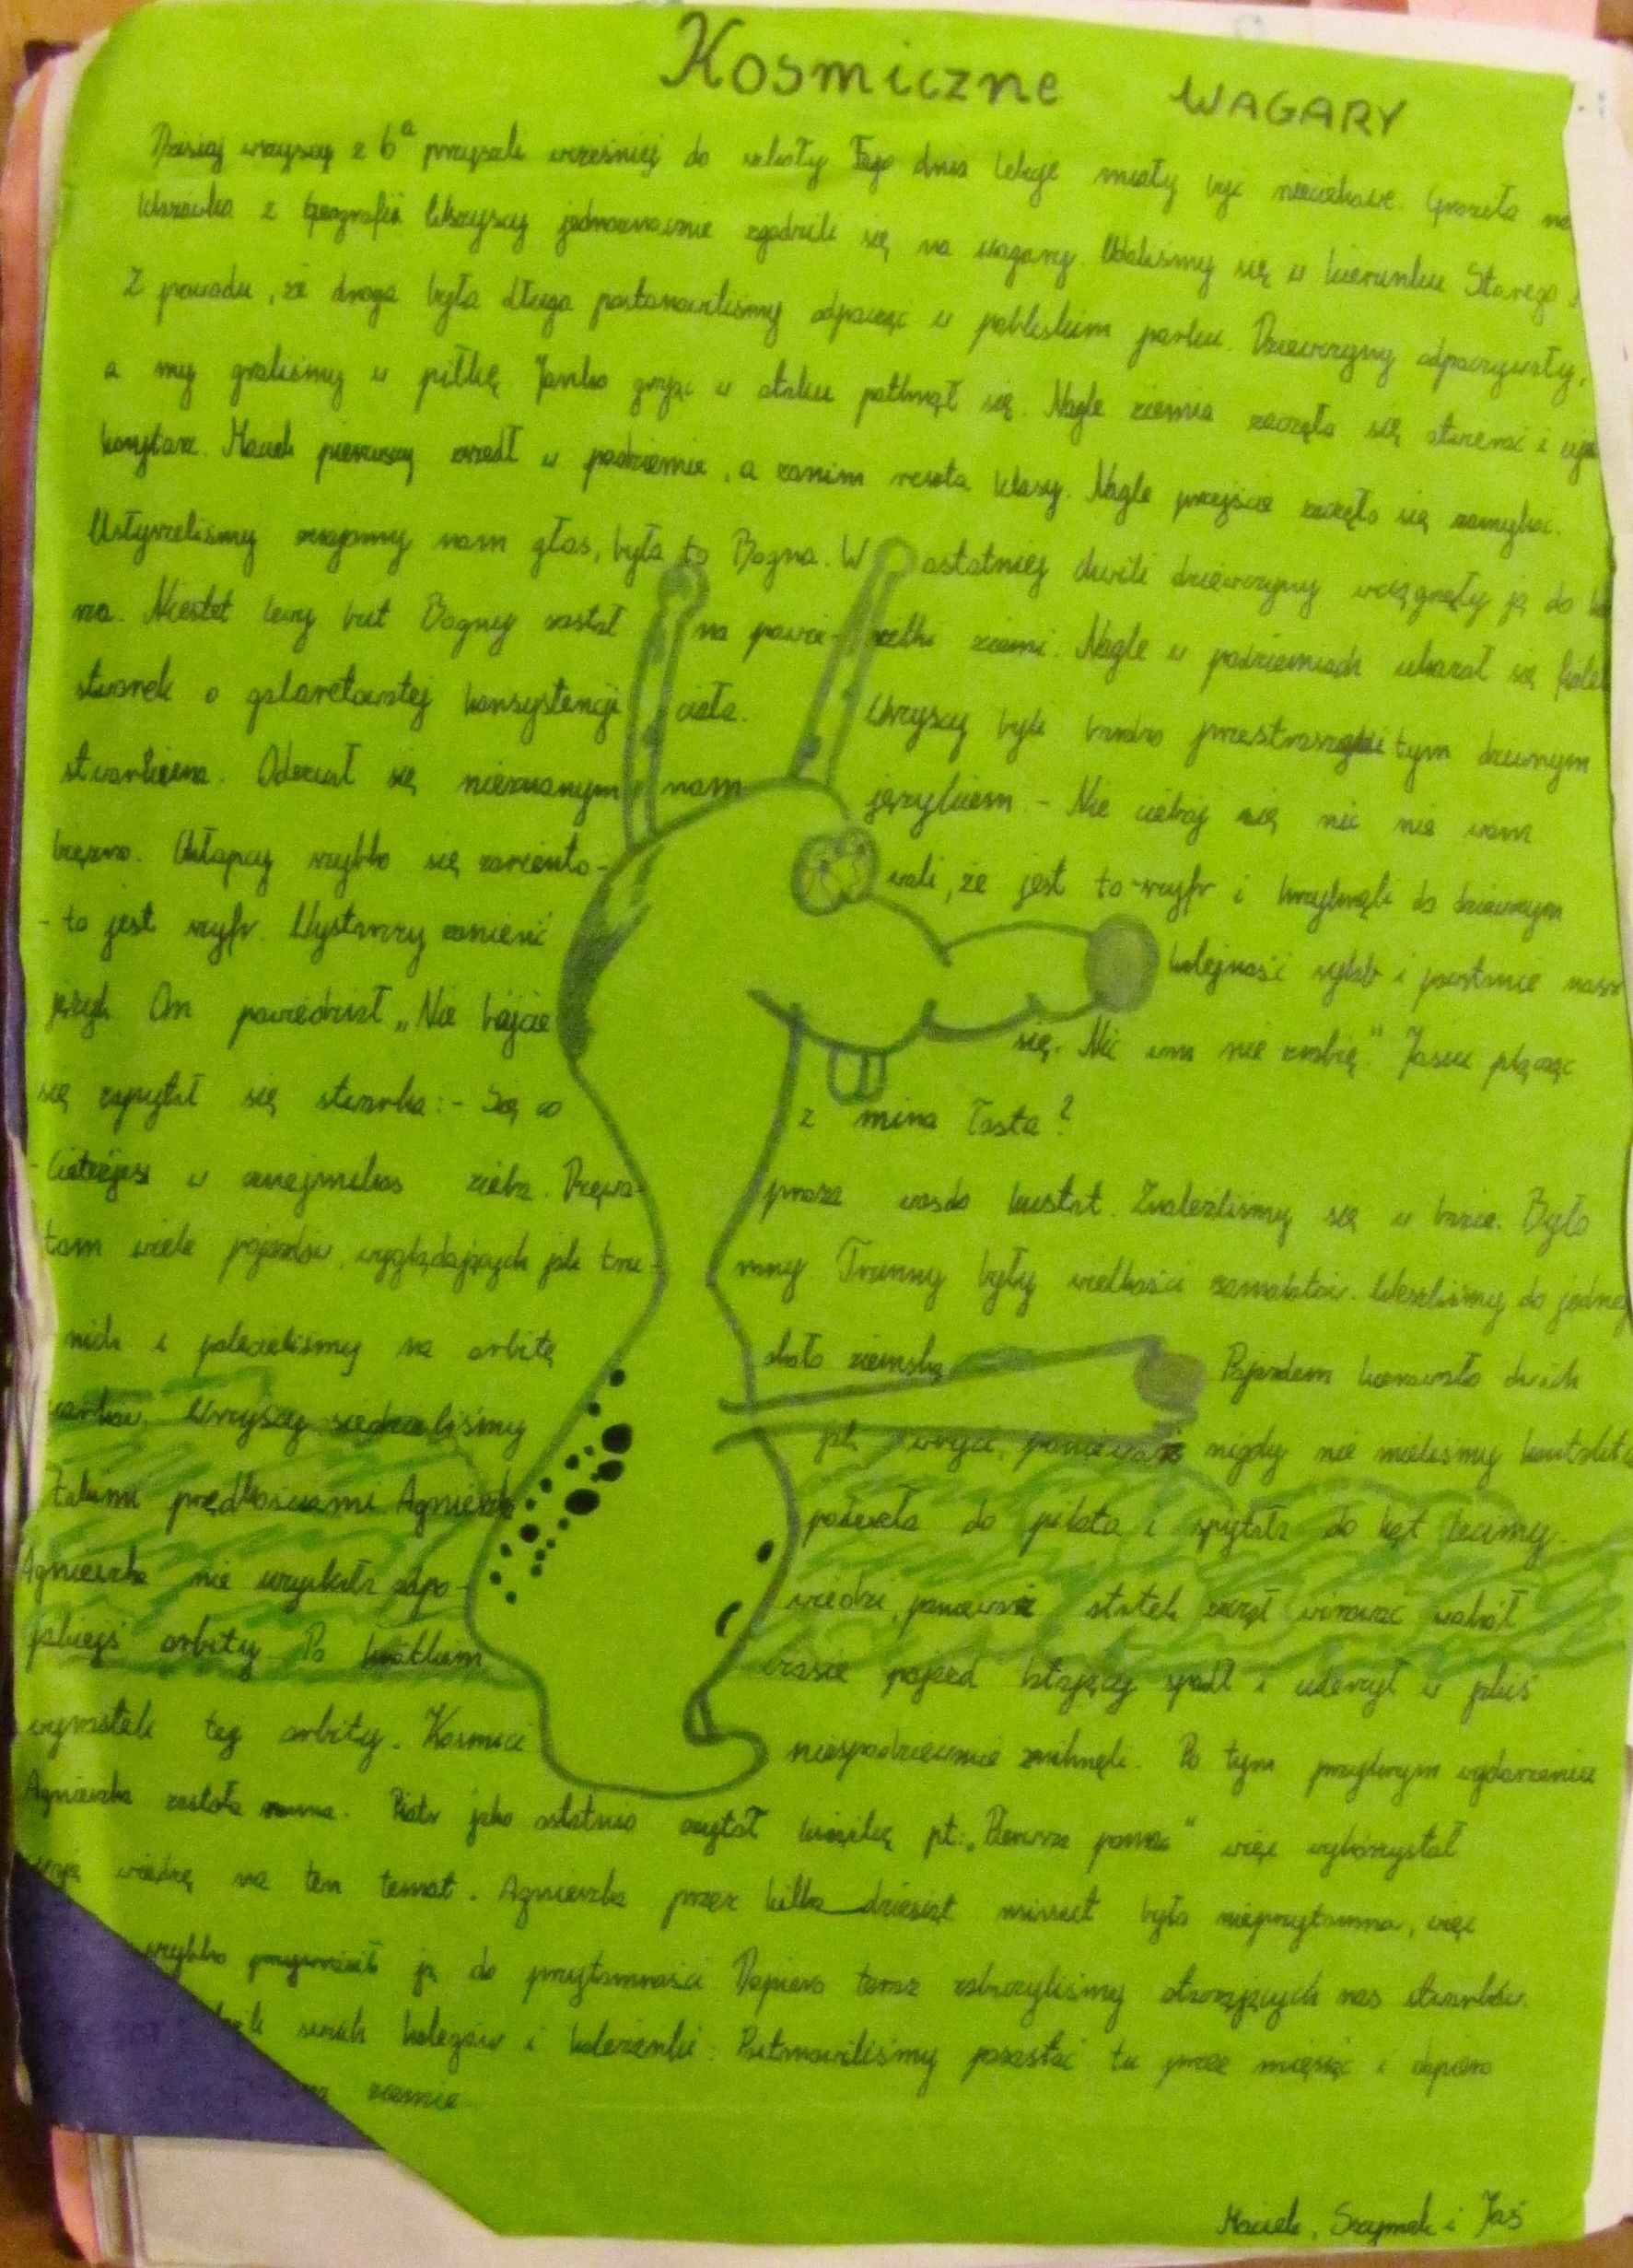 Kosmiczne WAGARY
Dzisiaj wszyscy z 6a przyszli wcześniej do szkoły Tego dnia lekcje miały być nieciekawe. Groziła na
klasówka z geografii Wszyscy jednoznacznie zgodzili się na wagary. Udaliśmy się w kierunku Starego
Z powodu, że droga była długa postanowiliśmy odpocząć w pobliskim parku. Dziewczyny odpoczywały,
a my graliśmy w piłkę Janko grając w ataku potknął się. Nagle ziemia zaczęła się otwierać i
korytarz. Maciek pierwszy wszedł w podziemie, a zanim reszta klasy. Nagle przejście zaczęło się zamykać.
Usłyszeliśmy znajomy nam głos, była to Bogna. W ostatniej chwili dziewczyny wciągnęły ją do
na. Niestet lewy but Bogny został na powie- rzchki ziemi. Nagle w podziemiach ukazał się
stworek o galaretowatej konsystencji ciała. Wszyscy byli bardzo przestraszeni tym dziwnym
stworkiem. Odezwał się nieznanym nam językiem. - Nie ciebaj się nic nie wam
bięzro. Chłopcy szybko się zoriento- wali, że jest to szyfr i krzyknęli do dziewczyn
- to jest szyfr. Wystarczy zmienić kolejność sylab i powstanie nasz
język On powiedział „Nie bójcie się. Nic wam nie zrobię." Jasiu płacząc
się zapytał się stworka: - Się co z mina Tosta?
w ziebz. proza wasdo kustat. Znaleźliśmy się w bazie. Było
tam wiele pojazdów, wyglądających jak tru- mny Trumny były wielkości samolotów. Weszliśmy do jednej
nich i polecieliśmy na orbitę około ziemską Pojazdem kierowało dwich
worków. Wszyscy siedzieliśmy jak wryci, ponieważ nigdy nie mieliśmy kontaktu
takimi prędkościami. Agnieszka podeszła do pilota i spytała do kąt lecimy.
Agnieszka nie uzyskała odpo- wiedzi, ponieważ statek zaczął wirować wokół
jakiejś orbity Po krótkim czasie pojazd latający spadł i uderzył w jakiś
wyrostek tej orbity. Kosmici niespodziewanie zniknęli. Po tym przykrym wydarzeniu
Agnieszka została ranna. Piotr jako ostatnio czytał książkę pt: „Pierwsza pomoc" więc wykorzystał
swoją wiedzę na ten temat. Agnieszka przez kilka dziesiąt minut była nieprzytomna, więc
szybko przywrócił ją do przytomności Dopiero teraz zobaczyliśmy otaczających nas stworków.
swoich kolegów i koleżanki. Postanowiliśmy pozostać tu przez miesiąc i dopiero
ziemie.
Maciek, Szymek i Jaś